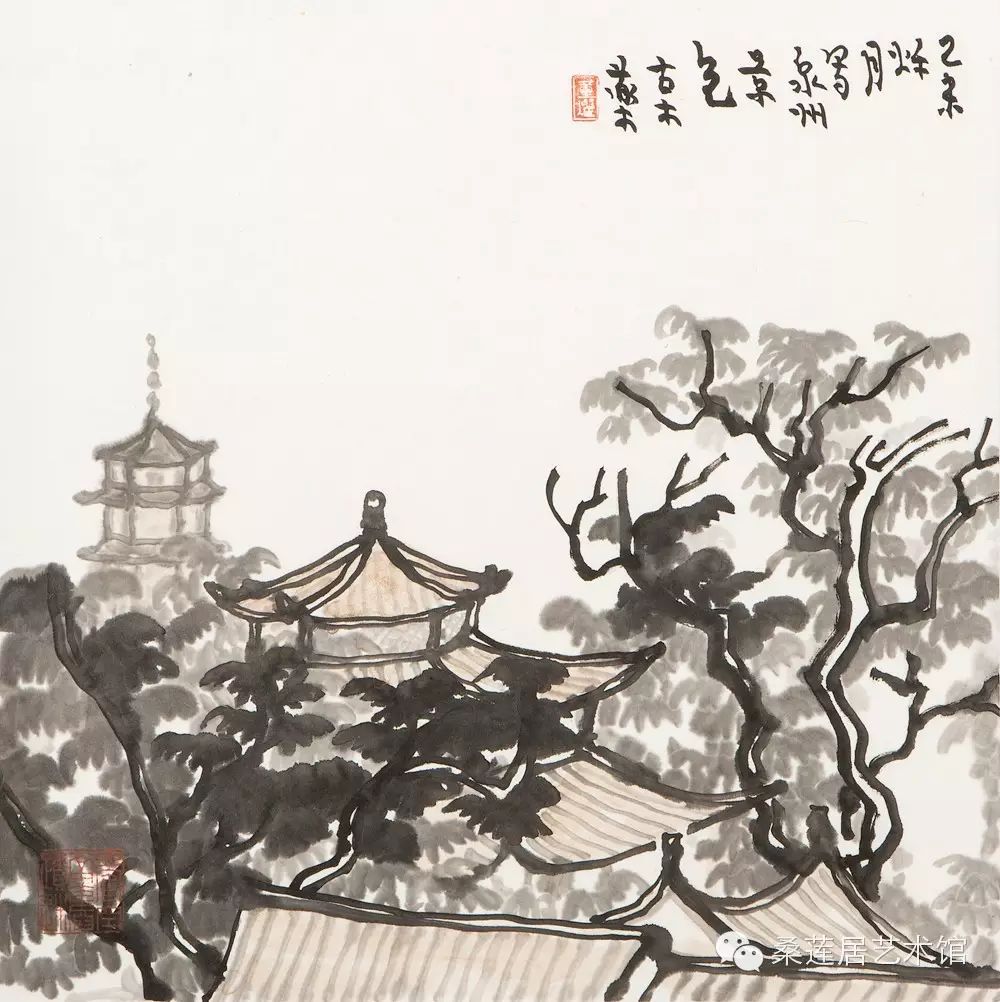 乙未
秋
月
写
泉州
景
色
古木
桑莲居艺术馆